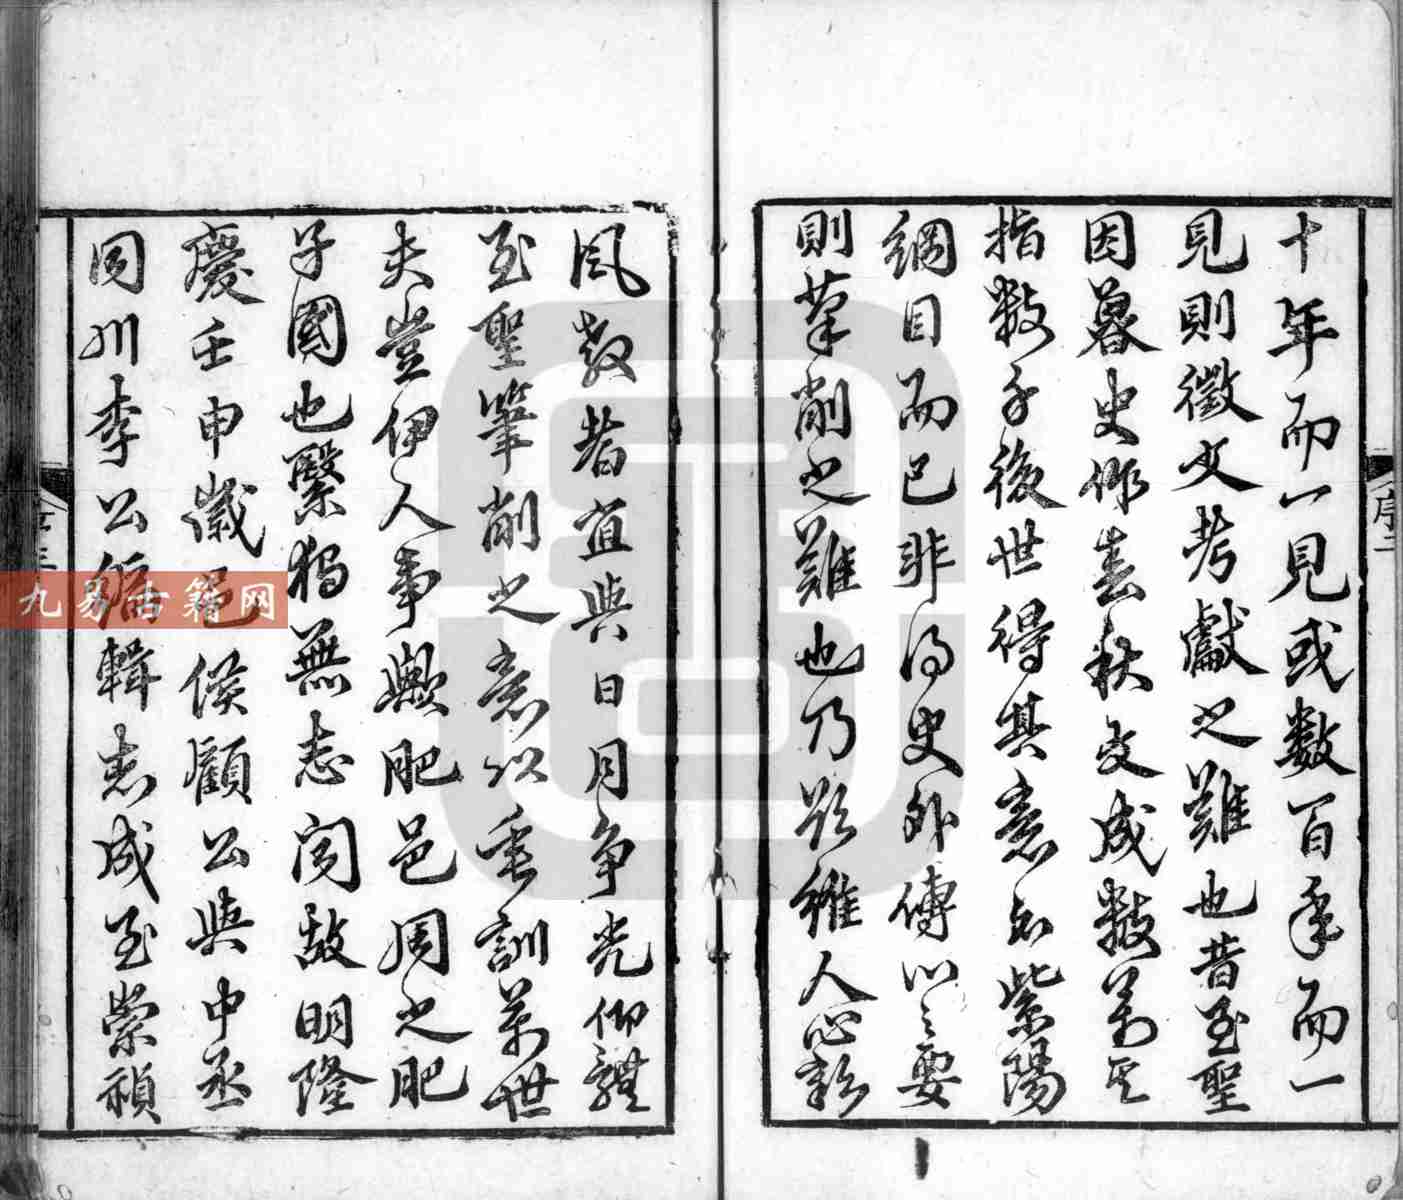 十年而一見或数百年而一
見則徵文考獻之難也昔至聖
因魯史作春秋文成數萬其
指數千後世得其意者紫陽
綱目而已非得史外傳心之要
則筆削之難也乃欲維人心敦
風教者直與日月争光仰體
至聖筆削之意以垂訓萬世
夫豈伊人事歟肥邑周之肥
子國也繄獨無志闵故明隆
慶壬申歲邑侯顧公與中丞
同川李公編輯志成至崇禎
序二
九易古籍网